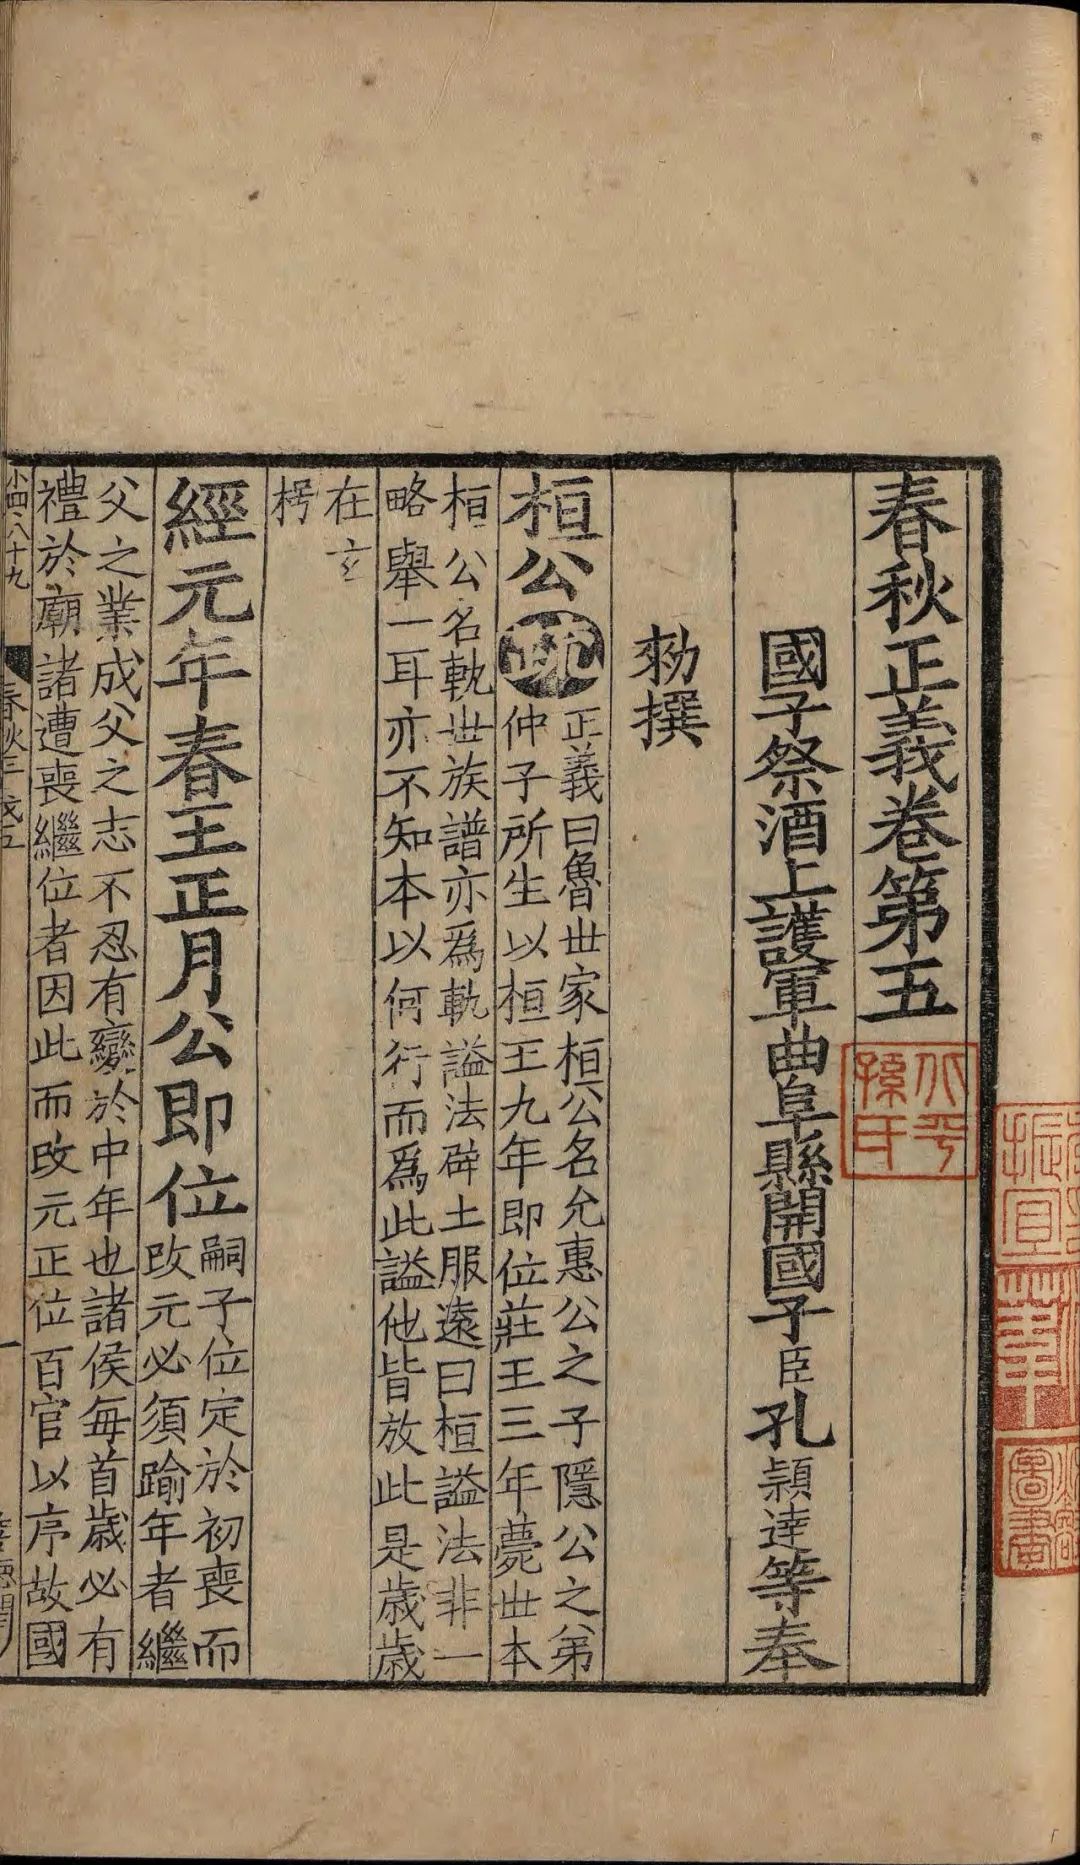 春秋正義卷第五
國子祭酒上護軍曲阜縣開國子臣孔穎達等奉
勑撰
桓公
疏
正義曰魯世家桓公名允惠公之子隱公之弟
仲子所生以桓王九年即位莊王三年薨世本
桓公名軌世族譜亦爲軌謚法辟土服遠曰桓謚法非一
略舉一耳亦不知本以何行而爲此謚他皆放此是歲歲
在玄
枵
經元年春王正月公即位
嗣子位定於初喪而
改元必須踰年者繼
父之業成父之志不忍有變於中年也諸侯每首歲必有
禮於廟諸遭喪繼位者因此而改元正位百官以序故國
春秋正義五
一
孫氏